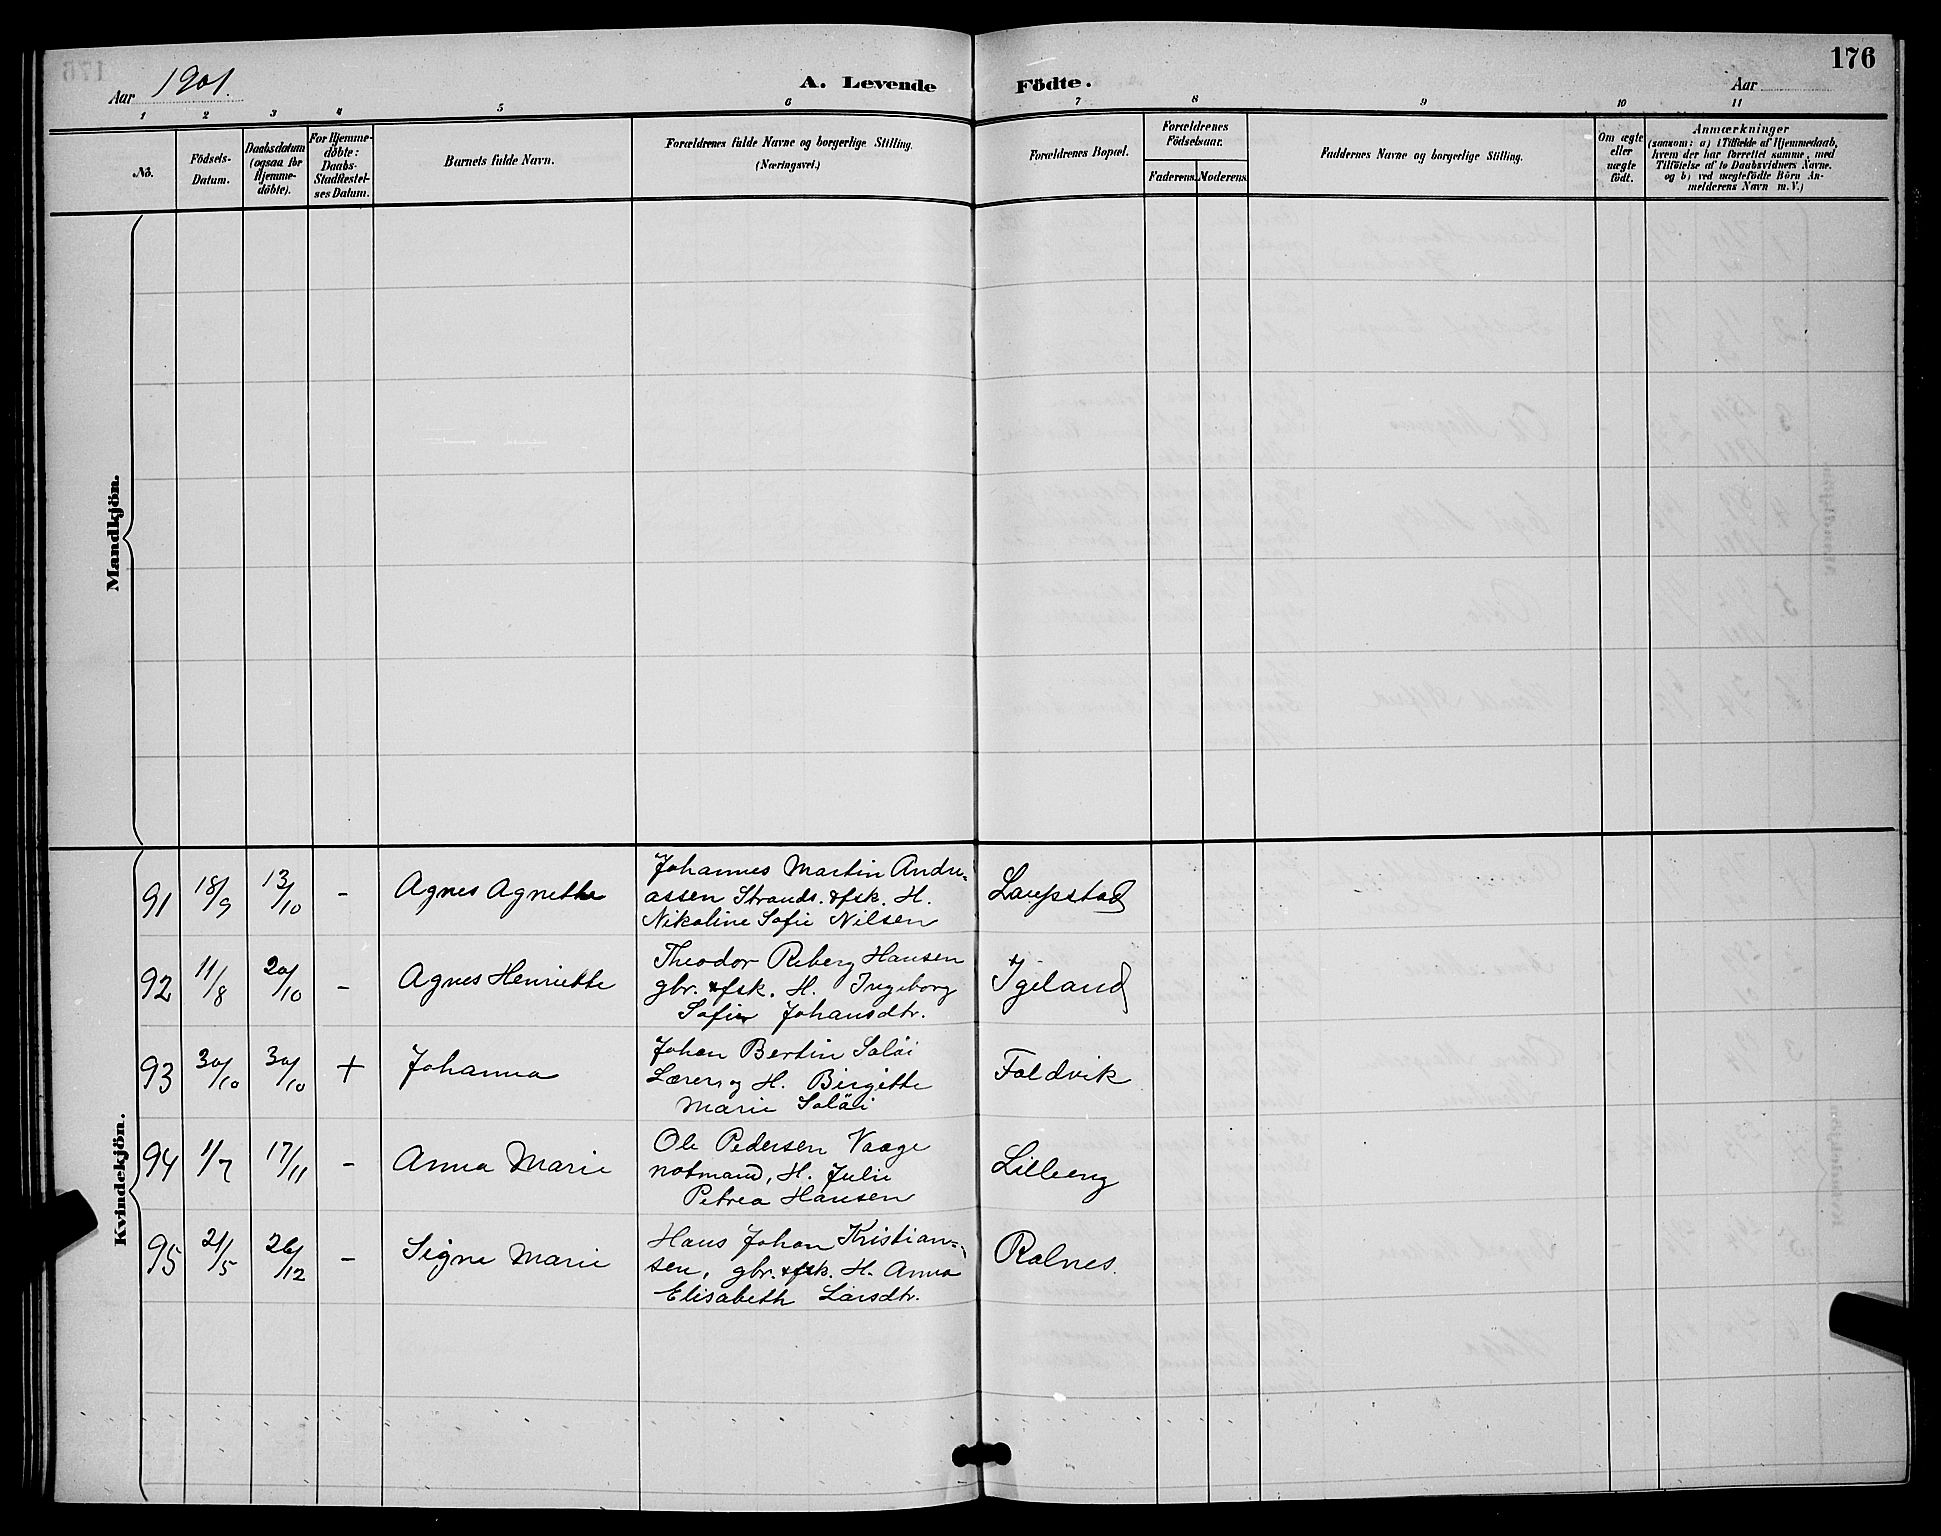 176
Aar 1901. A. Levende Födte. Aar
1 2 3 4 5 6 7 8 9 10 11
No.
Födsels-
Datum.
Daabsdatum
(ogsaa for
Hjemme-
döbte).
For Hjemme-
döbte:
Daabs-
Stadfestel-
ses Datum.
Barnets fulde Navn.
Forældrenes fulde Navne og borgerlige Stilling.
(Næringsvei.)
Forældrenes Bopæl.
Forældrenes
Födselsaar.
Faderens. Moderens.
Faddernes Navne og borgerlige Stilling.
Om ægte
eller
uægte
født.
Anmærkninger
(saasom: a) i Tilfælde af Hjemmedaab,
hvem der har forrettet samme, med
Tilföielse af to Daabsvidners Navne,
og b) ved uægtefödte Börn An-
melderens Navn m. V.)
Mandkjön.
Kvindekjön.
91 18/9 13/10 - Agnes Agnethe Johannes Martin Andre-
assen Strands. & fsk. H.
Nikoline Sofie Nilsen
Laupstad
92 11/8 20/10 - Agnes Henriette Theodor Reberg Hansen
gbr. & fsk. H. Ingeborg
Sofie Johansdtr.
Igeland
93 30/10 30/10 + Johanna Johan Bertin Saløi
Lærer og H. Birgitte
Marie Saløi
Foldvik
94 1/7 17/11 - Anna Marie Ole Pedersen Vaage
notmand, H. Julie
Petrea Hansen
Lilleeng
95 21/5 26/12 - Signe Marie Hans Johan Kristian-
sen, gbr. & fsk. H. Anna
Elisabeth Larsdtr.
Rolnes.